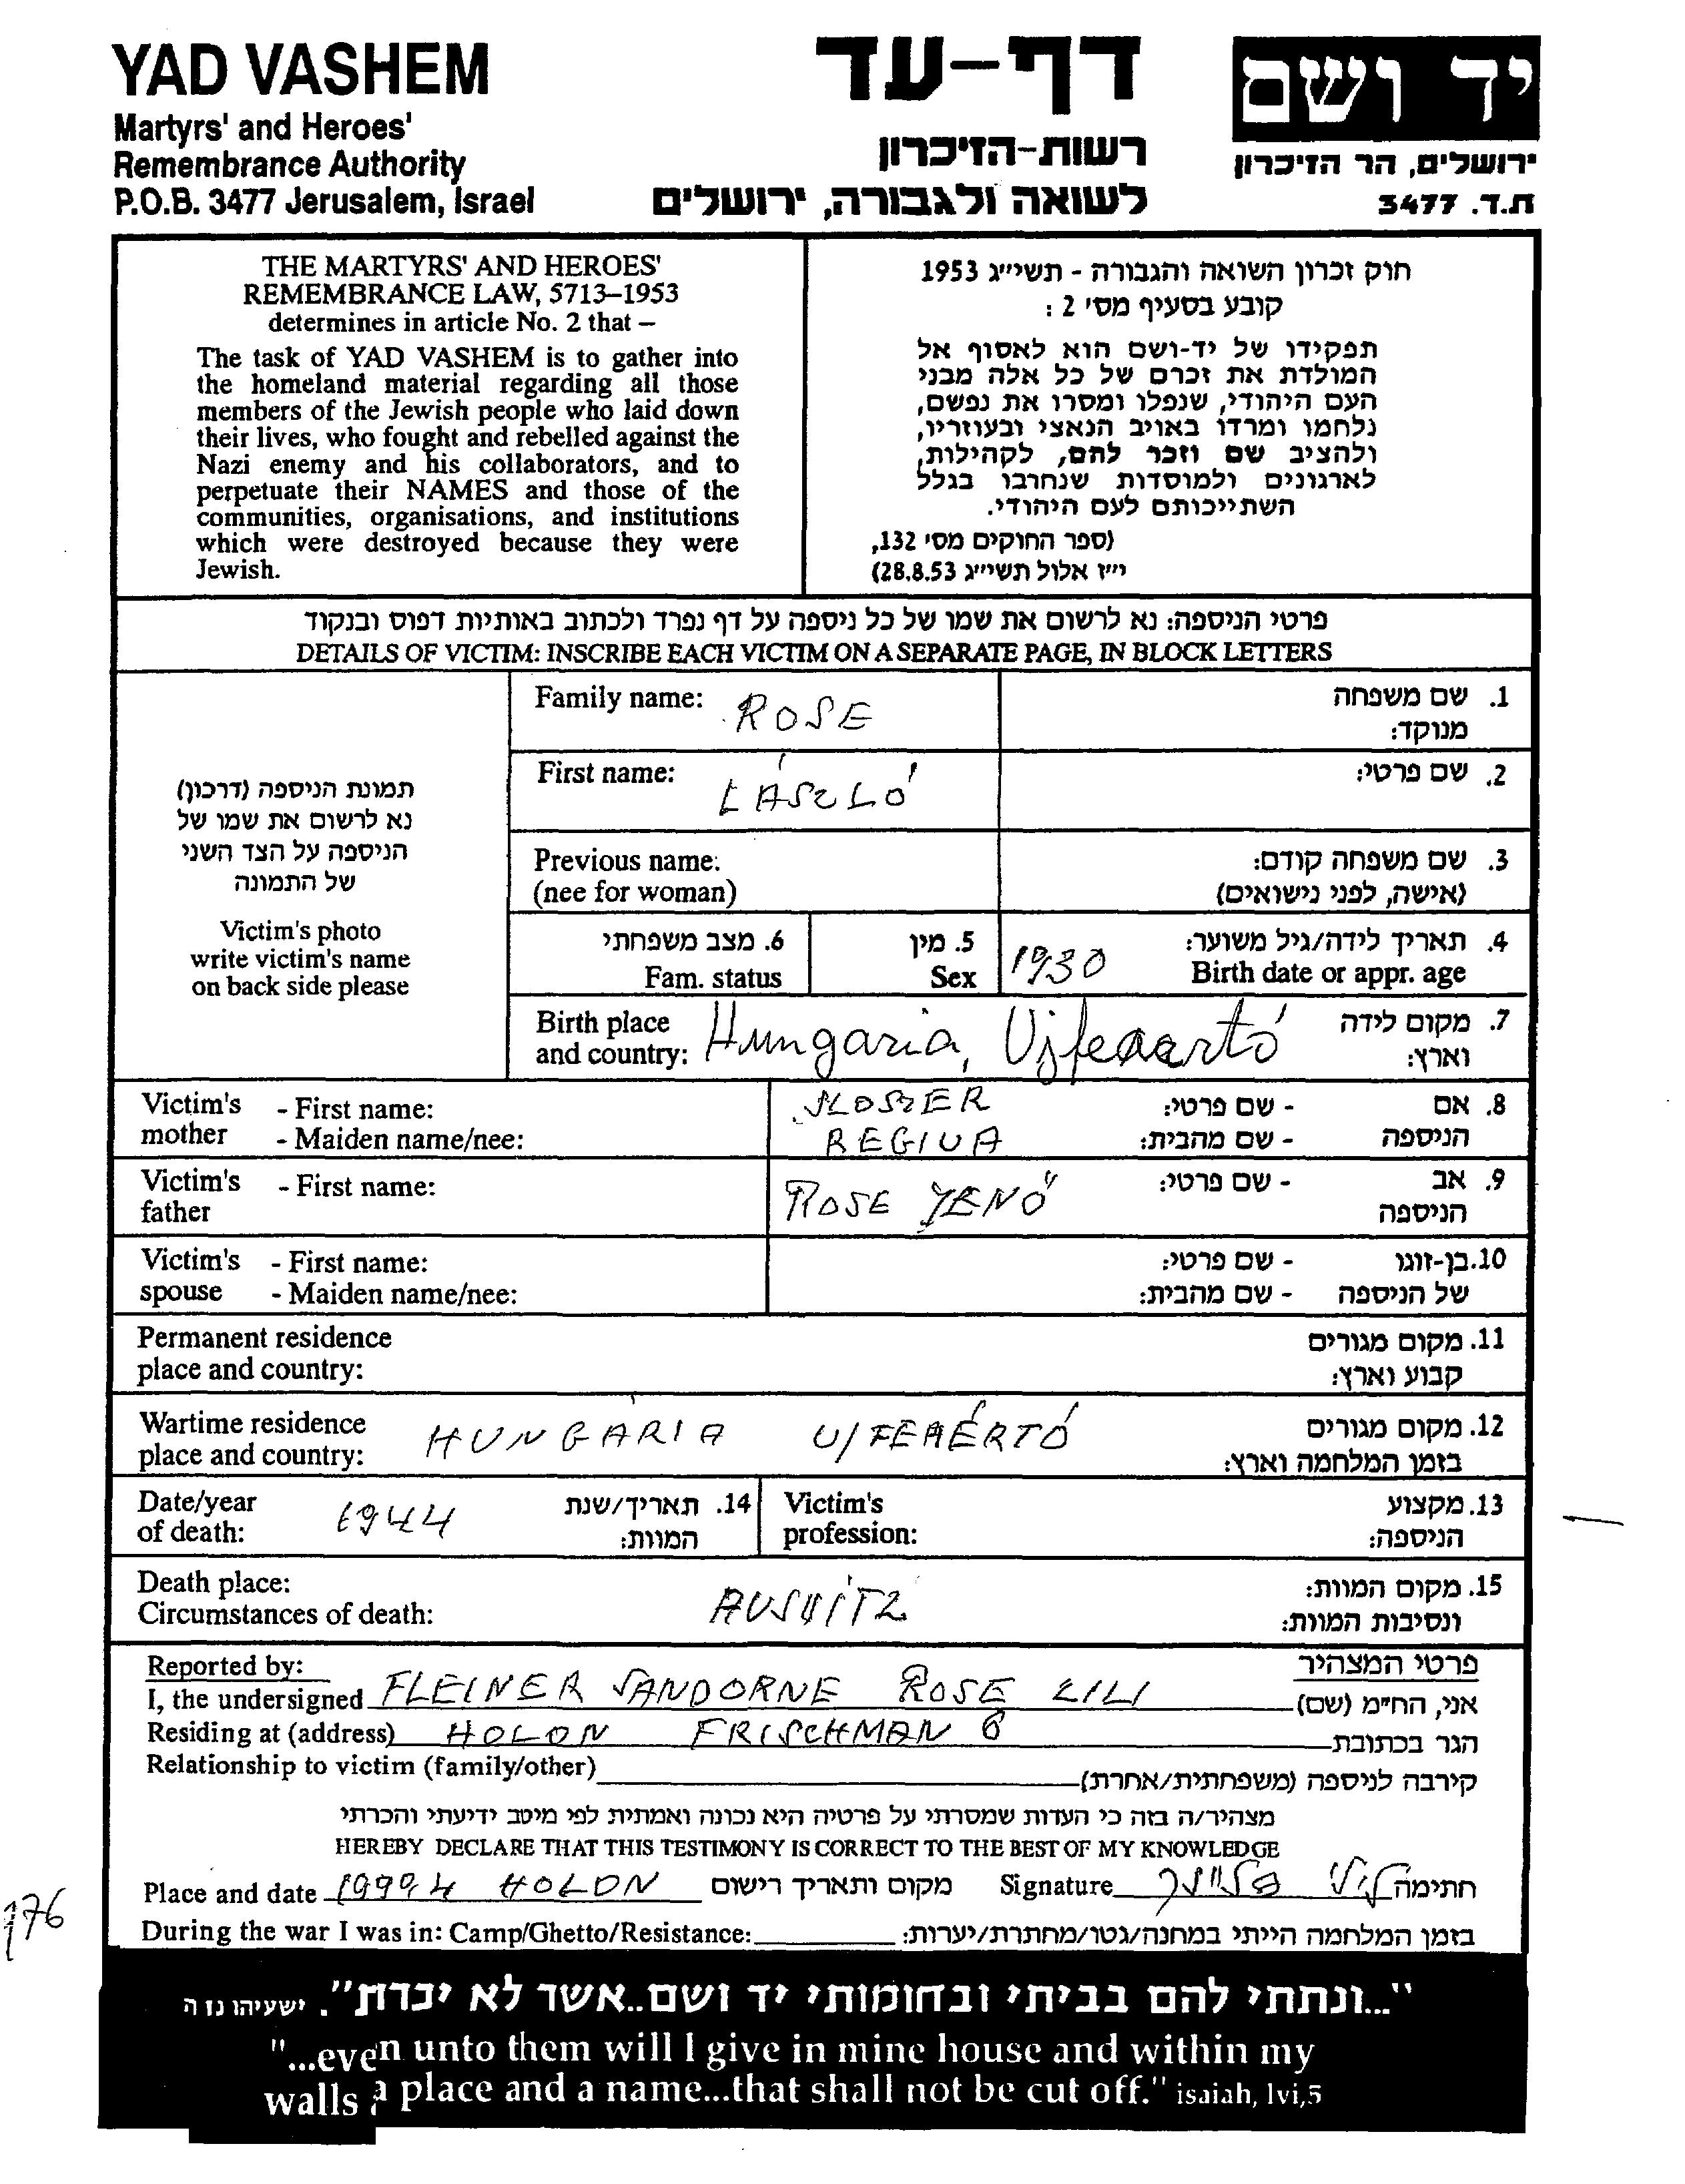 YAD VASHEM
Martyrs' and Heroes'
Remembrance Authority
P.O.B. 3477 Jerusalem, Israel
דף-עד
רשות-הזיכרון
לשואה ולגבורה, ירושלים
יד ושם
ירושלים, הר הזיכרון
ת.ד. 3477
THE MARTYRS' AND HEROES'
REMEMBRANCE LAW, 5713–1953
determines in article No. 2 that –
The task of YAD VASHEM is to gather into
the homeland material regarding all those
members of the Jewish people who laid down
their lives, who fought and rebelled against the
Nazi enemy and his collaborators, and to
perpetuate their NAMES and those of the
communities, organisations, and institutions
which were destroyed because they were
Jewish.
חוק זכרון השואה והגבורה - תשי״ג 1953
קובע בסעיף מס׳ 2 :
תפקידו של יד-ושם הוא לאסוף אל
המולדת את זכרם של כל אלה מבני
העם היהודי, שנפלו ומסרו את נפשם,
נלחמו ומרדו באויב הנאצי ובעוזריו,
ולהציב שם וזכר להם, לקהילות,
לארגונים ולמוסדות שנחרבו בגלל
השתייכותם לעם היהודי.
(ספר החוקים מס׳ 132,
י״ז אלול תשי״ג 28.8.53)
פרטי הניספה: נא לרשום את שמו של כל ניספה על דף נפרד ולכתוב באותיות דפוס ובנקוד
DETAILS OF VICTIM: INSCRIBE EACH VICTIM ON A SEPARATE PAGE, IN BLOCK LETTERS
תמונת הניספה (דרכון)
נא לרשום את שמו של
הניספה על הצד השני
של התמונה
Victim's photo
write victim's name
on back side please
Family name: ROSE 1. שם משפחה
מנוקד:
First name: LÁSZLÓ 2. שם פרטי:
Previous name: 3. שם משפחה קודם:
(nee for woman) (אישה, לפני נישואים)
6. מצב משפחתי 5. מין 1930 4. תאריך לידה/גיל משוער:
Fam. status Sex Birth date or appr. age
Birth place 7. מקום לידה
and country: Hungaria, וארץ:
Victim's - First name: SLOSZER - שם פרטי: 8. אם
mother - Maiden name/nee: REGINA - שם מהבית: הניספה
Victim's - First name: ROSE JENŐ - שם פרטי: 9. אב
father הניספה
Victim's - First name: - שם פרטי: 10.בן-זוגו
spouse - Maiden name/nee: - שם מהבית: של הניספה
Permanent residence 11. מקום מגורים
place and country: קבוע וארץ:
Wartime residence HUNGÁRIA UJFEHÉRTÓ 12. מקום מגורים
place and country: בזמן המלחמה וארץ:
Date/year 1944 14. תאריך/שנת Victim's 13. מקצוע
of death: המוות: profession: הניספה:
Death place: AUSVITZ 15. מקום המוות:
Circumstances of death: ונסיבות המוות:
Reported by: פרטי המצהיר
I, the undersigned FLEINER SANDORNE ROSE LILI אני, הח״מ (שם)
Residing at (address) HOLON FRISCHMAN 6 הגר בכתובת
Relationship to victim (family/other) קירבה לניספה (משפחתית/אחרת)
מצהיר/ה בזה כי העדות שמסרתי על פרטיה היא נכונה ואמתית לפי מיטב ידיעתי והכרתי
HEREBY DECLARE THAT THIS TESTIMONY IS CORRECT TO THE BEST OF MY KNOWLEDGE
Place and date HOLON מקום ותאריך רישום Signature חתימה
176
During the war I was in: Camp/Ghetto/Resistance: בזמן המלחמה הייתי במחנה/גטו/מחתרת/יערות:
"...ונתתי להם בביתי ובחומותי יד ושם..אשר לא יכרת". ישעיהו נו ה
"...even unto them will I give in mine house and within my
walls a place and a name...that shall not be cut off." isaiah, lvi,5